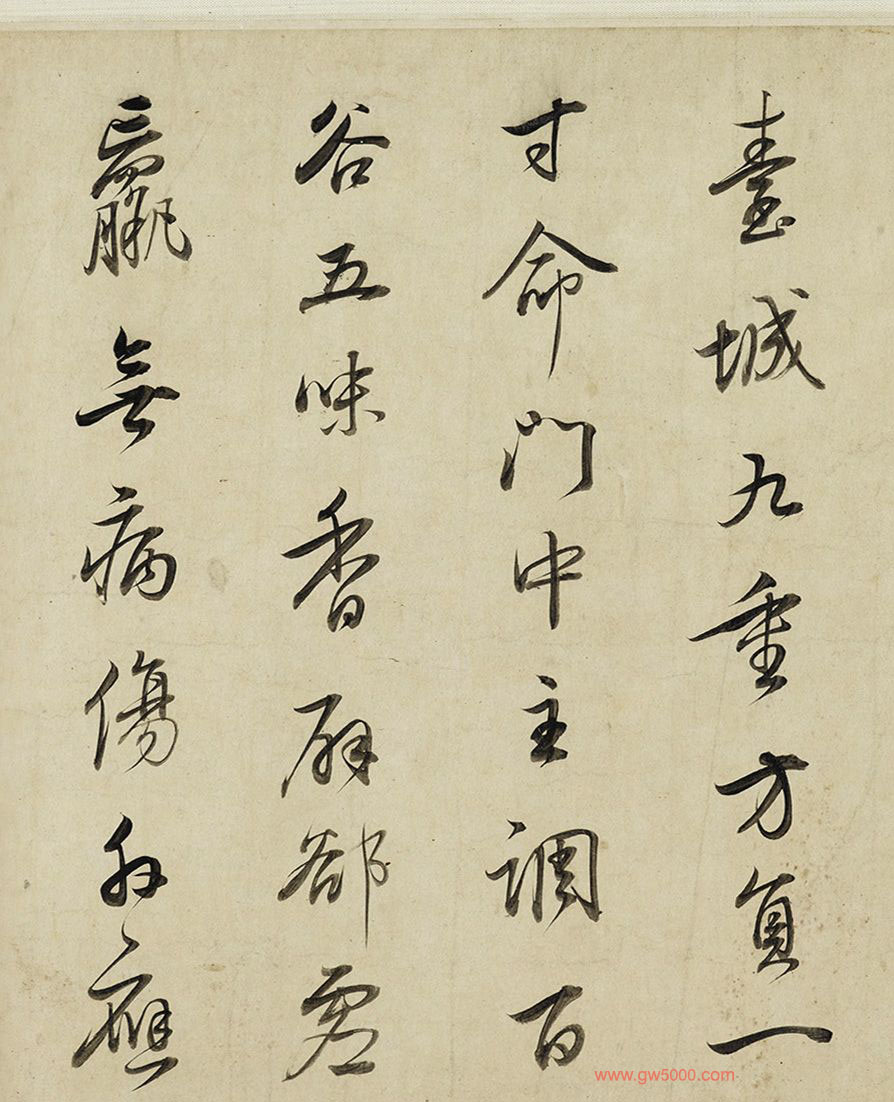 臺城九重方員一
寸命門中主調百
谷五味香辟郤虛
羸無病傷外應
www.gw5000.com